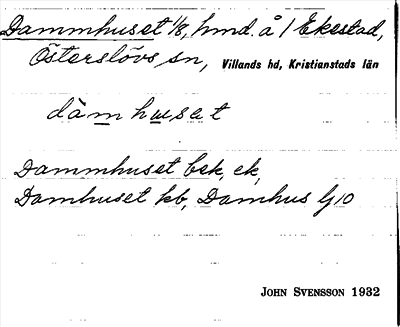 Dammhuset 1/8, hmd. å / Ekestad,
Österslövs sn, Villands hd, Kristianstads län
dàmhuset
Dammhuset bek, ek,
Damhuset kb, Damhus Lj10
JOHN SVENSSON 1932